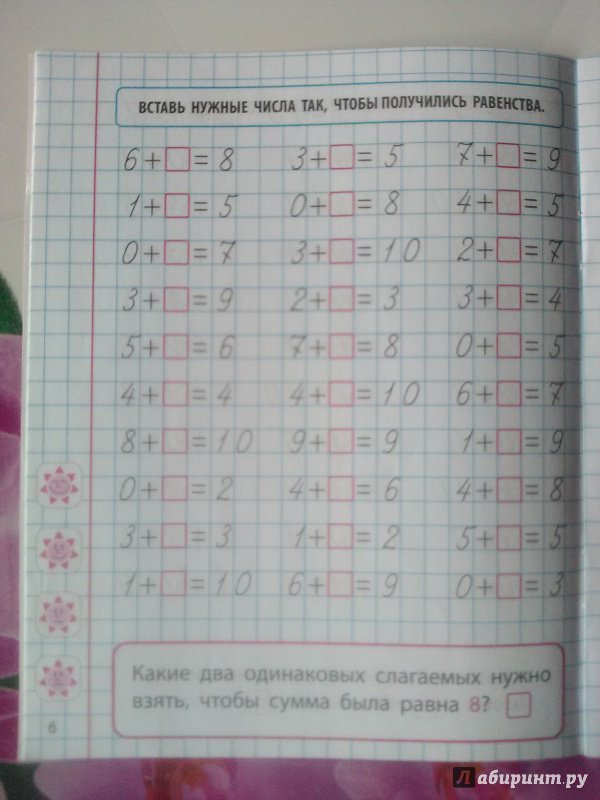 ВСТАВЬ НУЖНЫЕ ЧИСЛА ТАК, ЧТОБЫ ПОЛУЧИЛИСЬ РАВЕНСТВА.
6+□=8 3+□=5 7+□=9
1+□=5 0+□=8 4+□=5
0+□=7 3+□=10 2+□=7
3+□=9 2+□=3 3+□=4
5+□=6 7+□=8 0+□=5
4+□=4 4+□=10 6+□=7
8+□=10 9+□=9 1+□=9
0+□=2 4+□=6 4+□=8
3+□=3 1+□=2 5+□=5
1+□=10 6+□=9 0+□=3
Какие два одинаковых слагаемых нужно
взять, чтобы сумма была равна 8? □
6
Лабиринт.ру